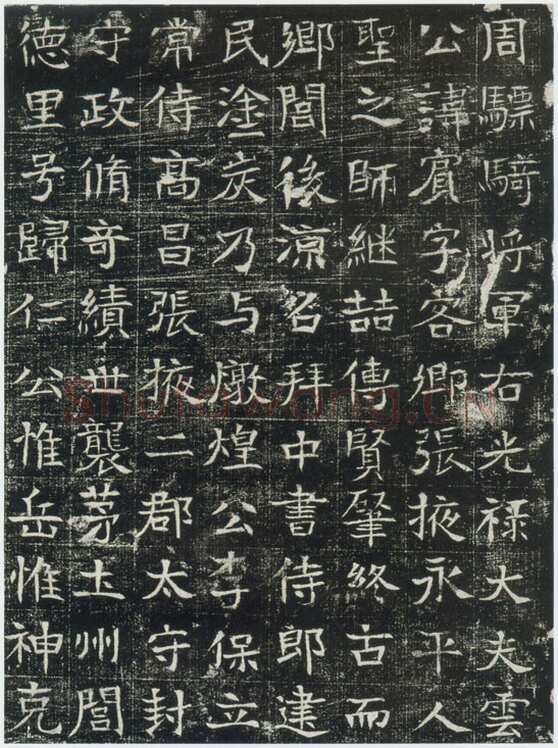 周驃騎将軍右光禄大夫雲
公諱賓字客卿張掖永平人
聖之師継喆傳賢肇終古而
鄉閭後涼召拜中書侍郎建
民塗炭乃与燉煌公李保立
常侍髙昌張掖二郡太守封
守政脩竒績世襲茅土州閭
徳里号歸仁公惟岳惟神克
Shufawang.cn